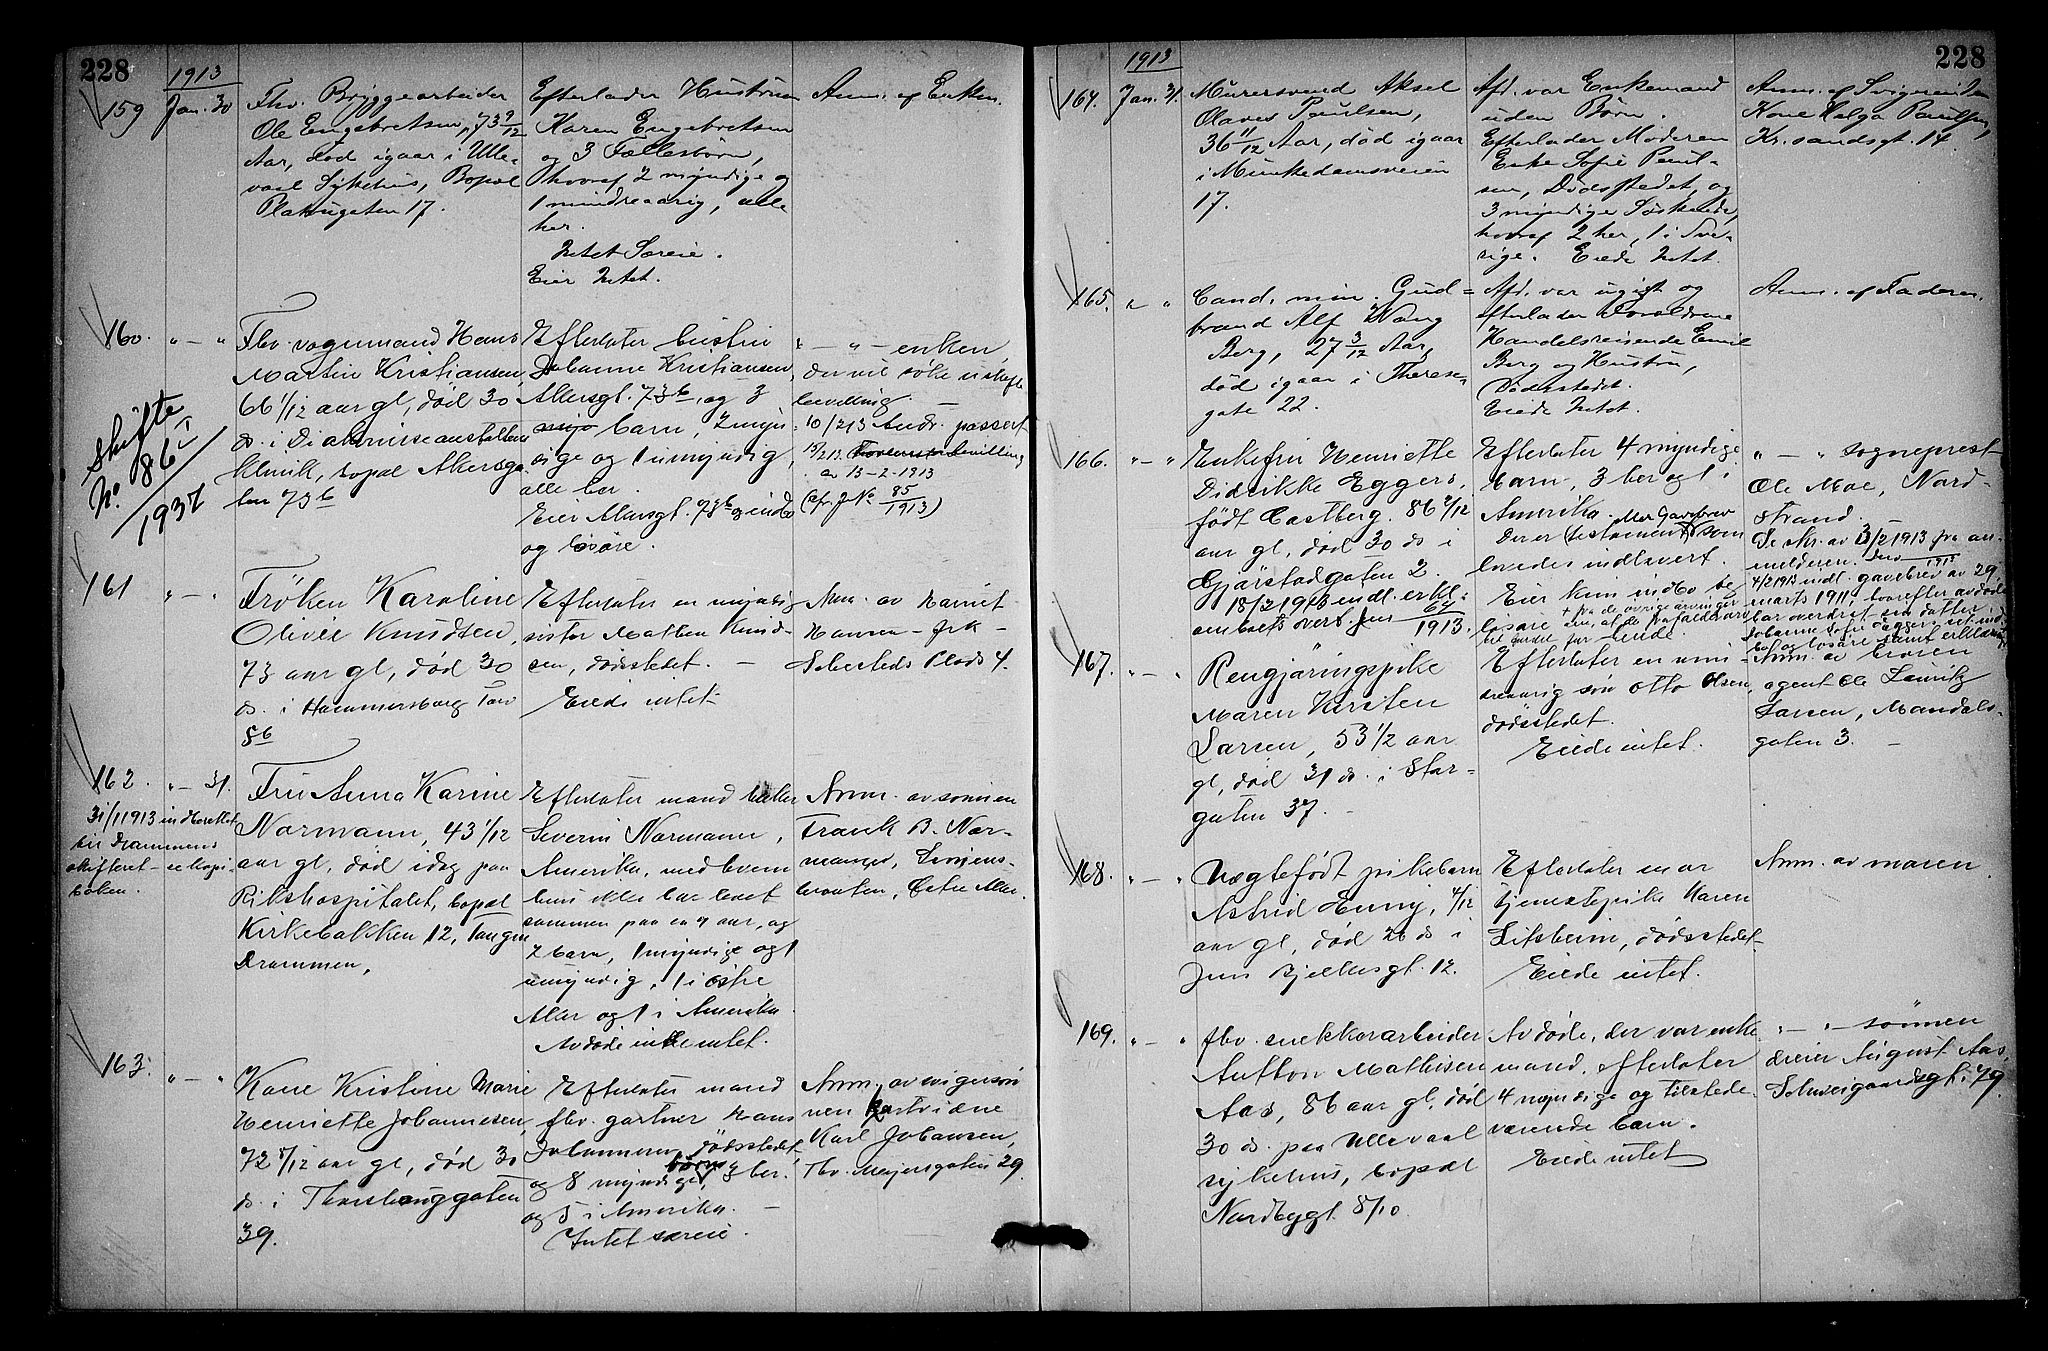 228
1913
159
Jan. 30
Fhv. Bryggearbeider
Ole Engebretsen, 73 9/12
Aar, død igaar i Ulle-
vaal Sykehus, Bopæl
Platougaten 17.
Efterlader Hustruen
Karen Engebretsen
og 3 Fællesbørn,
hvoraf 2 myndige og
1 mindreaarig, alle
her.
Intet Særeie.
Eier Intet.
Anm. af Enken.
160. " — "
Skifte
No. 86 I
/1937
Fhv. vognmand Hans
Martin Kristiansen,
66 1/12 aar gl, død 30
ds. i Diakonisseanstaltens
klinik, bopæl Akersga-
ten 73 b
Efterlater hustru
Johanne Kristiansen,
Akersgt. 73 b, og 3
barn, 2 myn-
dige og 1 umyndig,
alle her.
Eier Akersgt. 73 b, indbo
og løsøre.
" — " — enken,
der vil søke uskifte-
bevilling. —
10/2 13 Andr. passert
bevilling
av 13-2-1913
(cfr. J No 85/1913)
161 " — "
Frøken Karoline
Olivie Knudsen,
73 aar gl, død 30
ds. i Hammersborg Torv
8 b
Efterlater en myndig
søster Mathea Knud-
sen, dødsstedet. —
Eiede intet
Anm. av Harriet
Hansen — frk —
Sehesteds Plads 4.
162. " — 31.
31/1 1913 indberettet
til Drammens
skifteret — se kopi-
boken.
Fru Anna Karine
Normann, 43 1/12
aar gl, død idag paa
Rikshospitalet, bopæl
Kirkebakken 12, Tangen
Drammen,
Efterlater mand
Severin Normann,
Amerika, med hvem
hun ikke har levet
sammen paa en 4 aar, og
2 barn, 1 myndige og 1
umyndig, 1 i østre
Aker og 1 i Amerika.
Avdøde eiede intet.
Anm. av sønnen
Frank B. Nor-
mann,
Østre Aker.
163. " — "
Kone Kristine Marie
Henriette Johannesen,
72 8/12 aar gl, død 30
ds. i Thorshauggaten
39.
Efterlater mand
fhv. gartner Hans
Johannesen, dødsstedet,
og 8 myndige børn, 3 her
og 5 i Amerika. —
Intet særeie.
Anm. av svigersøn
nen
Karl Johansen,
Thv. Meyersgaten 29.
228
1913
164. Jan. 31.
Murersvend Aksel
Olaves Paulsen,
36 11/12 Aar, død igaar
i Munkedamsveien
17.
Afd. var Enkemand
uden Børn.
Efterlader Moderen
Enke Sofie Paul-
sen, Dødsstedet, og
3 myndige Søskende,
hvoraf 2 her, 1 i Sve-
rige. Eiede Intet.
Anm. af Svigerinden
Kone Helga Paulsen,
Kr.sandsgt. 14.
165. " "
Cand. min. Gud-
brand Alf Wang
Berg, 27 3/12 Aar,
død igaar i Therese-
gate 22.
Afd. var ugift og
efterlader Forældrene
Handelsreisende Emil
Berg og Hustru,
Dødsstedet.
Eiede Intet.
Anm. af Faderen.
166. " — "
Enkefru Henriette
Didrikke Eggers,
født Castberg. 86 2/12
aar gl, død 30 ds i
Gjørstadgaten 2.
18/2 1913 indl. erkl.
64/1913.
Efterlater 4 myndige
barn, 3 her og 1 i
Amerika.
Der er testament eller Gavebrev som
lovedes indlevert.
Eier kun indbo og
løsøre
" — " sogneprest
Ole Moe, Nord-
strand.
Se skr. av 3/2 1913 fra an-
melderen.
4/2 1913 indl. gavebrev av 29
marts 1911, hvorefter avdøde
har overdrat sin datter
167. " — "
Rengjøringspike
Maren Kirsten
Larsen, 53 1/2 aar
gl, død 31 ds. i Stor-
gaten 37. —
Efterlater en min-
dreaarig søn Otto Olsen,
dødsstedet.
Eiede intet.
Anm. av broren
agent Ole Lauritz
Larsen, Mandals-
gaten 3. —
168. " — "
Uægtefødt pikebarn
Astrid Enny, 4/12
aar gl, død 26 ds i
Jens Bjelkesgt. 12.
Efterlater mor
tjenestepike Maren
Litsheim, dødsstedet
Eiede intet.
Anm. av moren.
169. " — "
fhv. snekkerarbeider
Anthon Mathisen
Aas, 86 aar gl, død
30 ds. paa Ullevaal
sykehus, bopæl
Nordbygt. 8/10.
Avdøde, der var enke
mand, efterlater
4 myndige og tilstede
værende barn.
Eiede intet
" — " sønnen
dreier August Aas,
Schweigaardsgt. 79.